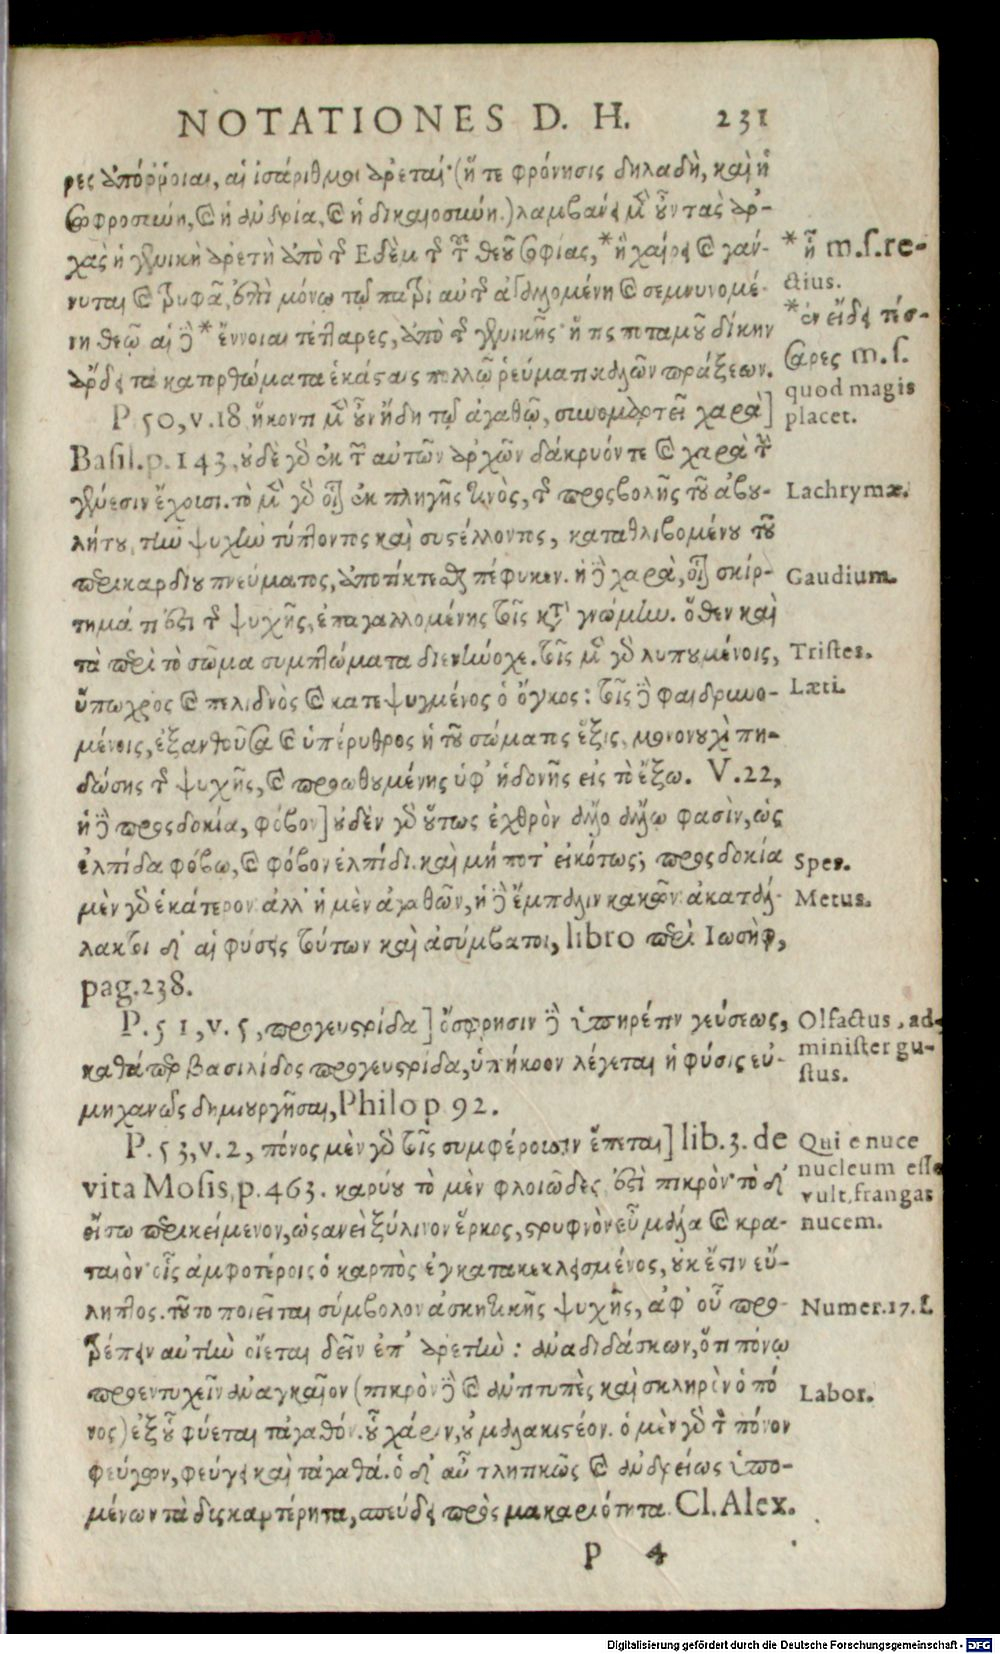 NOTATIONES D. H. 231
ρες ἀπόῤῥοιαι, αἱ ἰσάριθμοι ἀρεταί· (ἥ τε φρόνησις δηλαδὴ, καὶ ἡ
σωφροσύνη, καὶ ἡ ἀνδρία, καὶ ἡ δικαιοσύνη.) λαμβάνει μὲν οὖν τὰς ἀρ-
χὰς ἡ γενικὴ ἀρετὴ ἀπὸ τῆς Εδὲμ τῆς τοῦ θεοῦ σοφίας, * ἣ χαίρει καὶ γάν-
νυται καὶ τρυφᾷ, ἐπὶ μόνῳ τῷ πατρὶ αὐτῆς ἀγαλλομένη καὶ σεμνυνομέ-
νη θεῷ αἱ δὲ * ἔννοιαι τέτταρες, ἀπὸ τῆς γενικῆς· ἥ τις ποταμοῦ δίκην
ἄρδει τὰ κατορθώματα ἑκάσταις πολλῷ ῥεύματι καλῶν πράξεων.
P. 50, v. 18 ἥκοντι μὲν οὖν ἤδη τῷ ἀγαθῷ, συνομαρτεῖ χαρὰ]
Basil. p. 143, οὐδὲ γὰρ ἐκ τῶν αὐτῶν ἀρχῶν δάκρυόν τε καὶ χαρὰ τὴν
γένεσιν ἔχουσι. τὸ μὲν γὰρ οἷον ἐκ πληγῆς τινὸς, τῆς προσβολῆς τοῦ ἀβου-
λήτου, τὴν ψυχὴν τύπτοντος καὶ συστέλλοντος, καταθλιβομένου τοῦ
περικαρδίου πνεύματος, ἀποτίκτεσθαι πέφυκεν. ἡ δὲ χαρὰ, οἷον σκίρ-
τημά τι ἐστι τῆς ψυχῆς, ἐπαγαλλομένης τοῖς κατὰ γνώμην. ὅθεν καὶ
τὰ περὶ τὸ σῶμα συμπτώματα διενήνοχε. τοῖς μὲν γὰρ λυπουμένοις,
ὕπωχρος καὶ πελιδνὸς καὶ κατεψυγμένος ὁ ὄγκος: τοῖς δὲ φαιδρυνο-
μένοις, ἐξανθοῦσα καὶ ὑπέρυθρος ἡ τοῦ σώματος ἕξις, μονονουχὶ πη-
δώσης τῆς ψυχῆς, καὶ προωθουμένης ὑφ' ἡδονῆς εἰς τὸ ἔξω. V. 22,
ἡ δὲ προσδοκία, φόβον] οὐδὲν γὰρ οὕτως ἐχθρὸν ἄλλο ἄλλῳ φασὶν, ὡς
ἐλπίδα φόβῳ, καὶ φόβον ἐλπίδι. καὶ μή ποτ' εἰκότως; προσδοκία
μὲν γὰρ ἑκάτερον· ἀλλ' ἡ μὲν ἀγαθῶν, ἡ δὲ ἔμπαλιν κακῶν· ἀκατάλ-
λακτοι δ' αἱ φύσεις τούτων καὶ ἀσύμβατοι, libro περὶ Ιωσὴφ,
pag. 238.
P. 51, v. 5, προγευστρίδα] ὄσφρησιν δὲ ὑπηρέτιν γεύσεως,
καθάπερ βασιλίδος προγευστρίδα, ὑπήκοον λέγεται ἡ φύσις εὐ-
μηχανῶς δημιουργῆσαι, Philo p 92.
P. 53, v. 2, πόνος μὲν γὰρ τοῖς συμφέρουσιν ἕπεται] lib. 3. de
vita Mosis, p. 463. καρύου τὸ μὲν φλοιῶδες ἐστὶ πικρὸν· τὸ δ'
εἴσω περικείμενον, ὡσανεὶ ξύλινον ἕρκος, στρυφνὸν εὖ μάλα καὶ κρα-
ταιὸν· οἷς ἀμφοτέροις ὁ καρπὸς ἐγκατακεκλεισμένος, οὐκ ἔστιν εὔ-
ληπτος. τοῦτο ποιεῖται σύμβολον ἀσκητικῆς ψυχῆς, ἀφ' οὗ προ-
τρέπειν αὐτὴν οἴεται δεῖν ἐπ' ἀρετὴν: ἀναδιδάσκων, ὅτι πόνῳ
προεντυχεῖν ἀναγκαῖον (πικρὸν δὲ καὶ ἀντιτυπὲς καὶ σκληρὸν ὁ πό
νος) ἐξ οὗ φύεται τἀγαθόν. οὗ χάριν, οὐ μαλακιστέον. ὁ μὲν γὰρ τὸν πόνον
φεύγων, φεύγει καὶ τἀγαθά. ὁ δ' αὖ τλητικῶς καὶ ἀνδρείως ὑπο-
μένων τὰ δυσκαρτέρητα, σπεύδει πρὸς μακαριότητα. Cl. Alex.
P 4
* ᾗ m. s. re-
ctius.
* ἐν εἴδει τέσ-
σαρες m. s.
quod magis
placet.
Lachrymæ.
Gaudium.
Tristes.
Læti.
Spes.
Metus.
Olfactus, ad-
minister gu-
stus.
Qui e nuce
nucleum esse
vult, frangas
nucem.
Numer. 17. 8.
Labor.
Digitalisierung gefördert durch die Deutsche Forschungsgemeinschaft - DFG